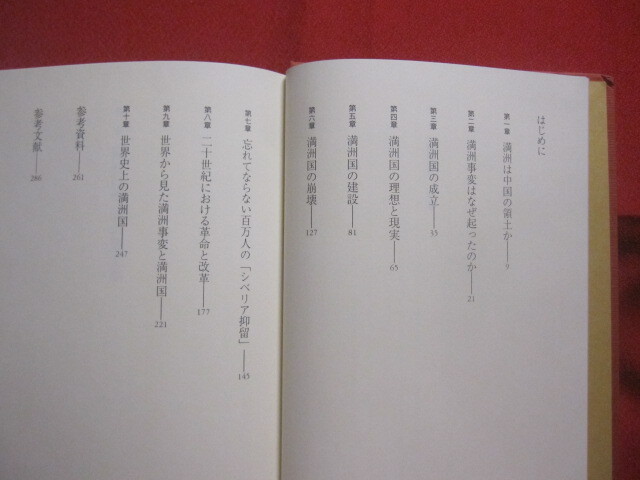 はじめに
第一章 満洲は中国の領土か——9
第二章 満洲事変はなぜ起ったのか——21
第三章 満洲国の成立——35
第四章 満洲国の理想と現実——65
第五章 満洲国の建設——81
第六章 満洲国の崩壊——127
第七章 忘れてならない百万人の「シベリア抑留」——145
第八章 二十世紀における革命と改革——177
第九章 世界から見た満洲事変と満洲国——221
第十章 世界史上の満洲国——247
参考資料——261
参考文献——286